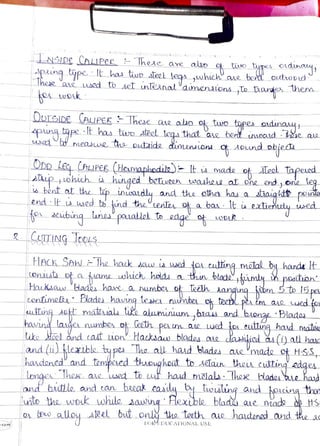 INSIDE CALIPER :- These are also of two types ordinary,
spring type. It has two steel legs, which are bent outward.
These are used to set internal dimensions, to transfer them
for work.
OUTSIDE CALIPER :- These are also of two types ordinary,
spring type. It has two steel legs that are bent inward. These are
used to measure the outside dimensions of round objects
ODD LEG CALIPER (Hermaphodite) :- It is made of steel Tapered
strip, which is hinged between washers at one end, one leg
is bent at the tip inwardly and the other has a straight pointed
end. It is used to find the center of a bar. It is extremely used
for scribing lines parallel to edge of work.
2 CUTTING TOOLS
HACK SAW :- The hack saw is used for cutting metal by hands. It
consists of a frame which holds a thin blade, firmly in position.
Hacksaw blades have a number of teeth ranging from 5 to 15 per
centimeter. Blades having lesser number of teeth per cm are used for
cutting soft materials like aluminium, brass and bronze. Blades
having larger number of teeth per cm are used for cutting hard materials
like steel and cast iron. Hacksaw blades are classified as (i) all hard
and (ii) flexible types. The all hard blades are made of H.S.S,
hardened and tempered throughout to retain their cutting edges
longer. These are used to cut hard metals. These blades are hard
and brittle and can break easily by twisting and forcing them
into the work while sawing. Flexible blades are made of H.S
or low alloy steel but only the teeth are hardened and the
FOR EDUCATIONAL USE